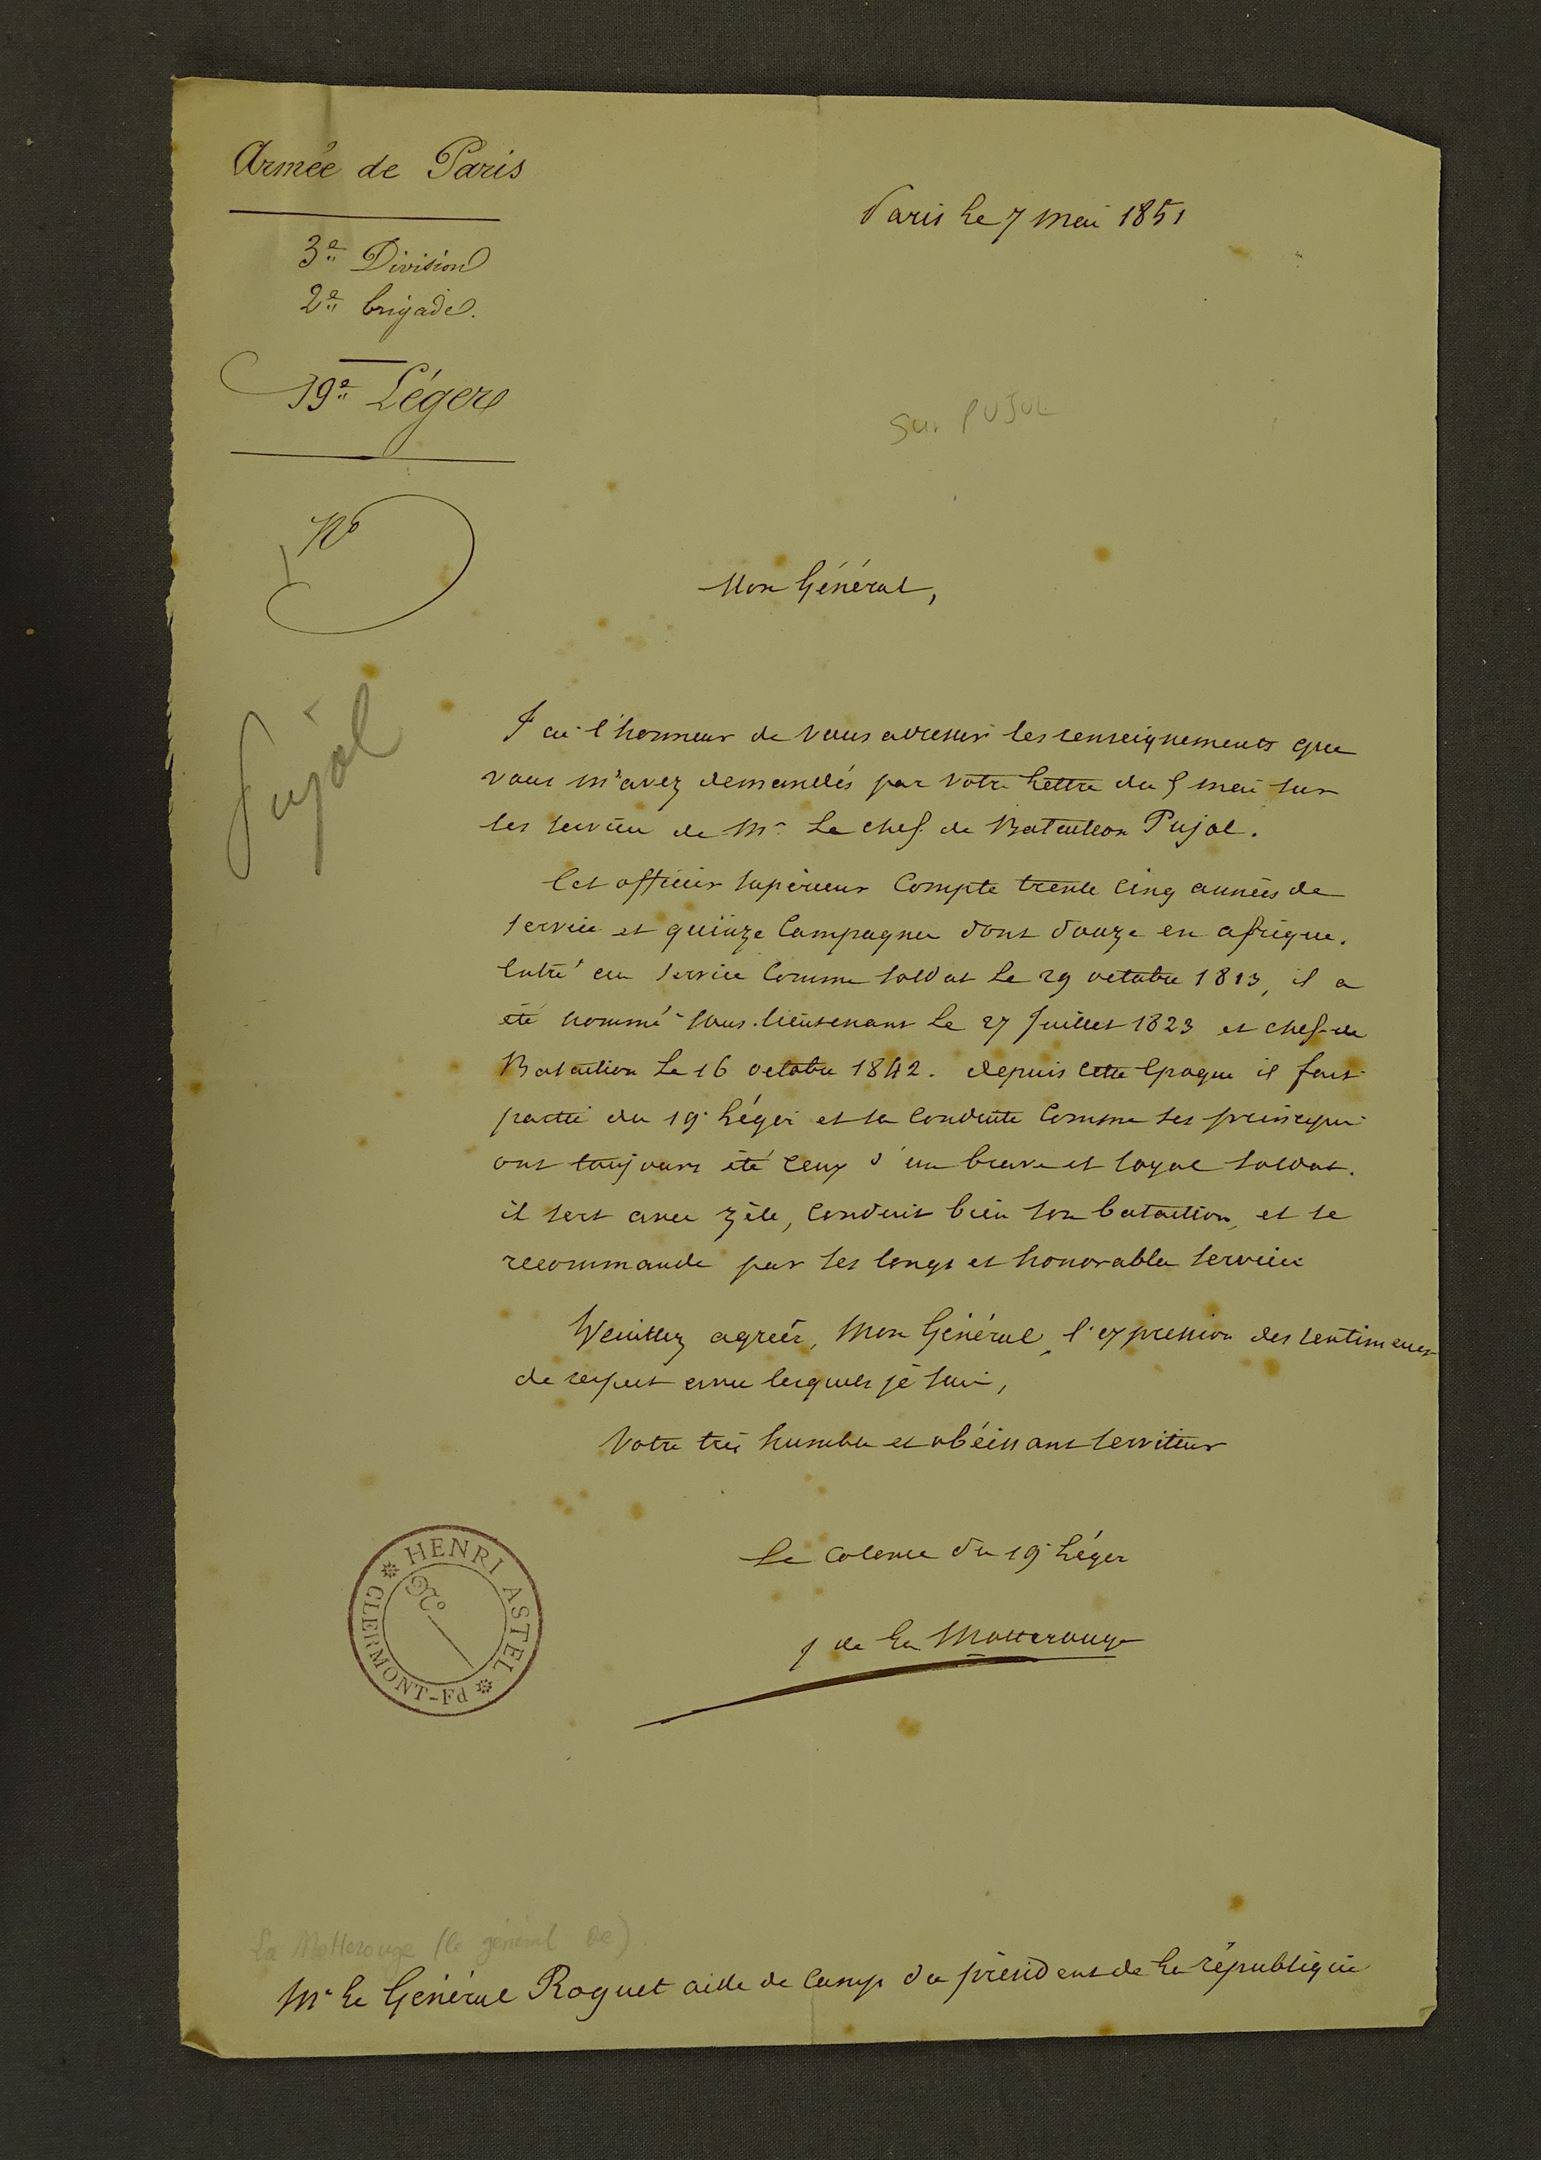 Armée de Paris
Paris le 7 mai 1851
3e Division
2e brigade.
19e Léger
sur PUJOL
No
Mon Général,
Pujol
J'ai l'honneur de vous adresser les renseignements que
vous m'avez demandés par votre lettre du 5 mai sur
les services de Mr le chef de Bataillon Pujol.
Cet officier supérieur compte trente cinq années de
service et quinze campagnes dont douze en afrique.
Entré au service comme soldat le 29 octobre 1813, il a
été nommé sous-lieutenant le 27 Juillet 1823 et chef de
Bataillon le 16 octobre 1842. depuis cette époque il fait
partie du 19e Léger et sa conduite comme ses principes
ont toujours été ceux d'un brave et loyal soldat.
il sert avec zèle, conduit bien son bataillon, et se
recommande par ses longs et honorables services
Veuillez agréer, Mon Général, l'expression des sentiments
de respect avec lesquels je suis,
Votre très humble et obéissant serviteur
Le Colonel du 19e Léger
J de La Motterouge
HENRI ASTEL
No
CLERMONT-Fd
La Motterouge (le général de)
Mr le Général Roguet aide de camp du président de la république